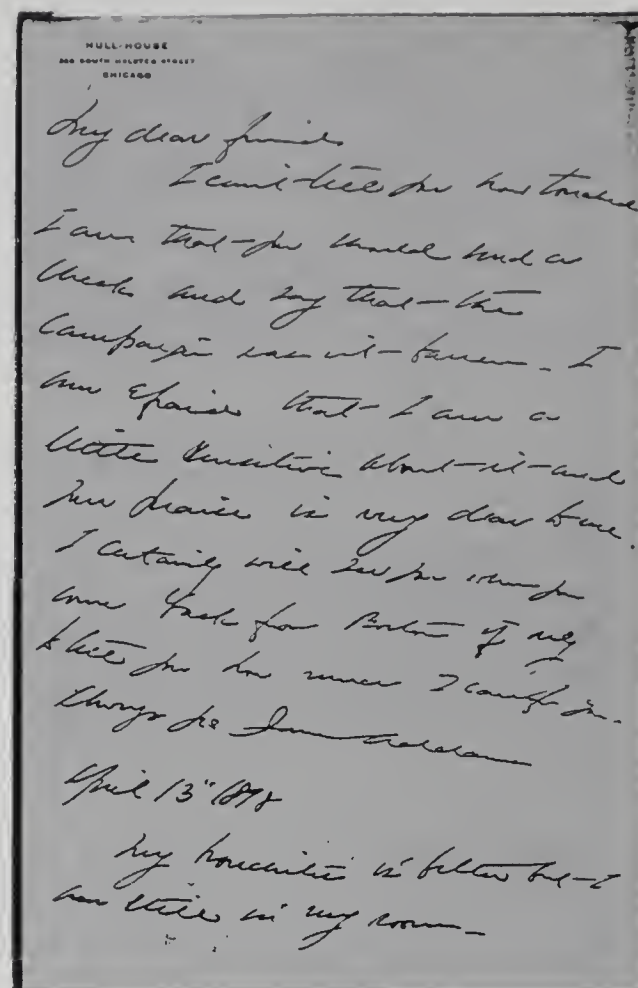 HULL-HOUSE
SOUTH HALSTED STREET
CHICAGO
My dear friend
I can't tell you how touched
I am that you should send a
check and say that the
Campaign was not barren. I
am afraid that I am a
little sensitive about it and
your praise is very dear to me.
I certainly will see you when you
come back from Boston if only
to tell you how much I care for you.
Always yrs Jane Addams
April 13" 1898
My bronchitis is better but I
am still in my room